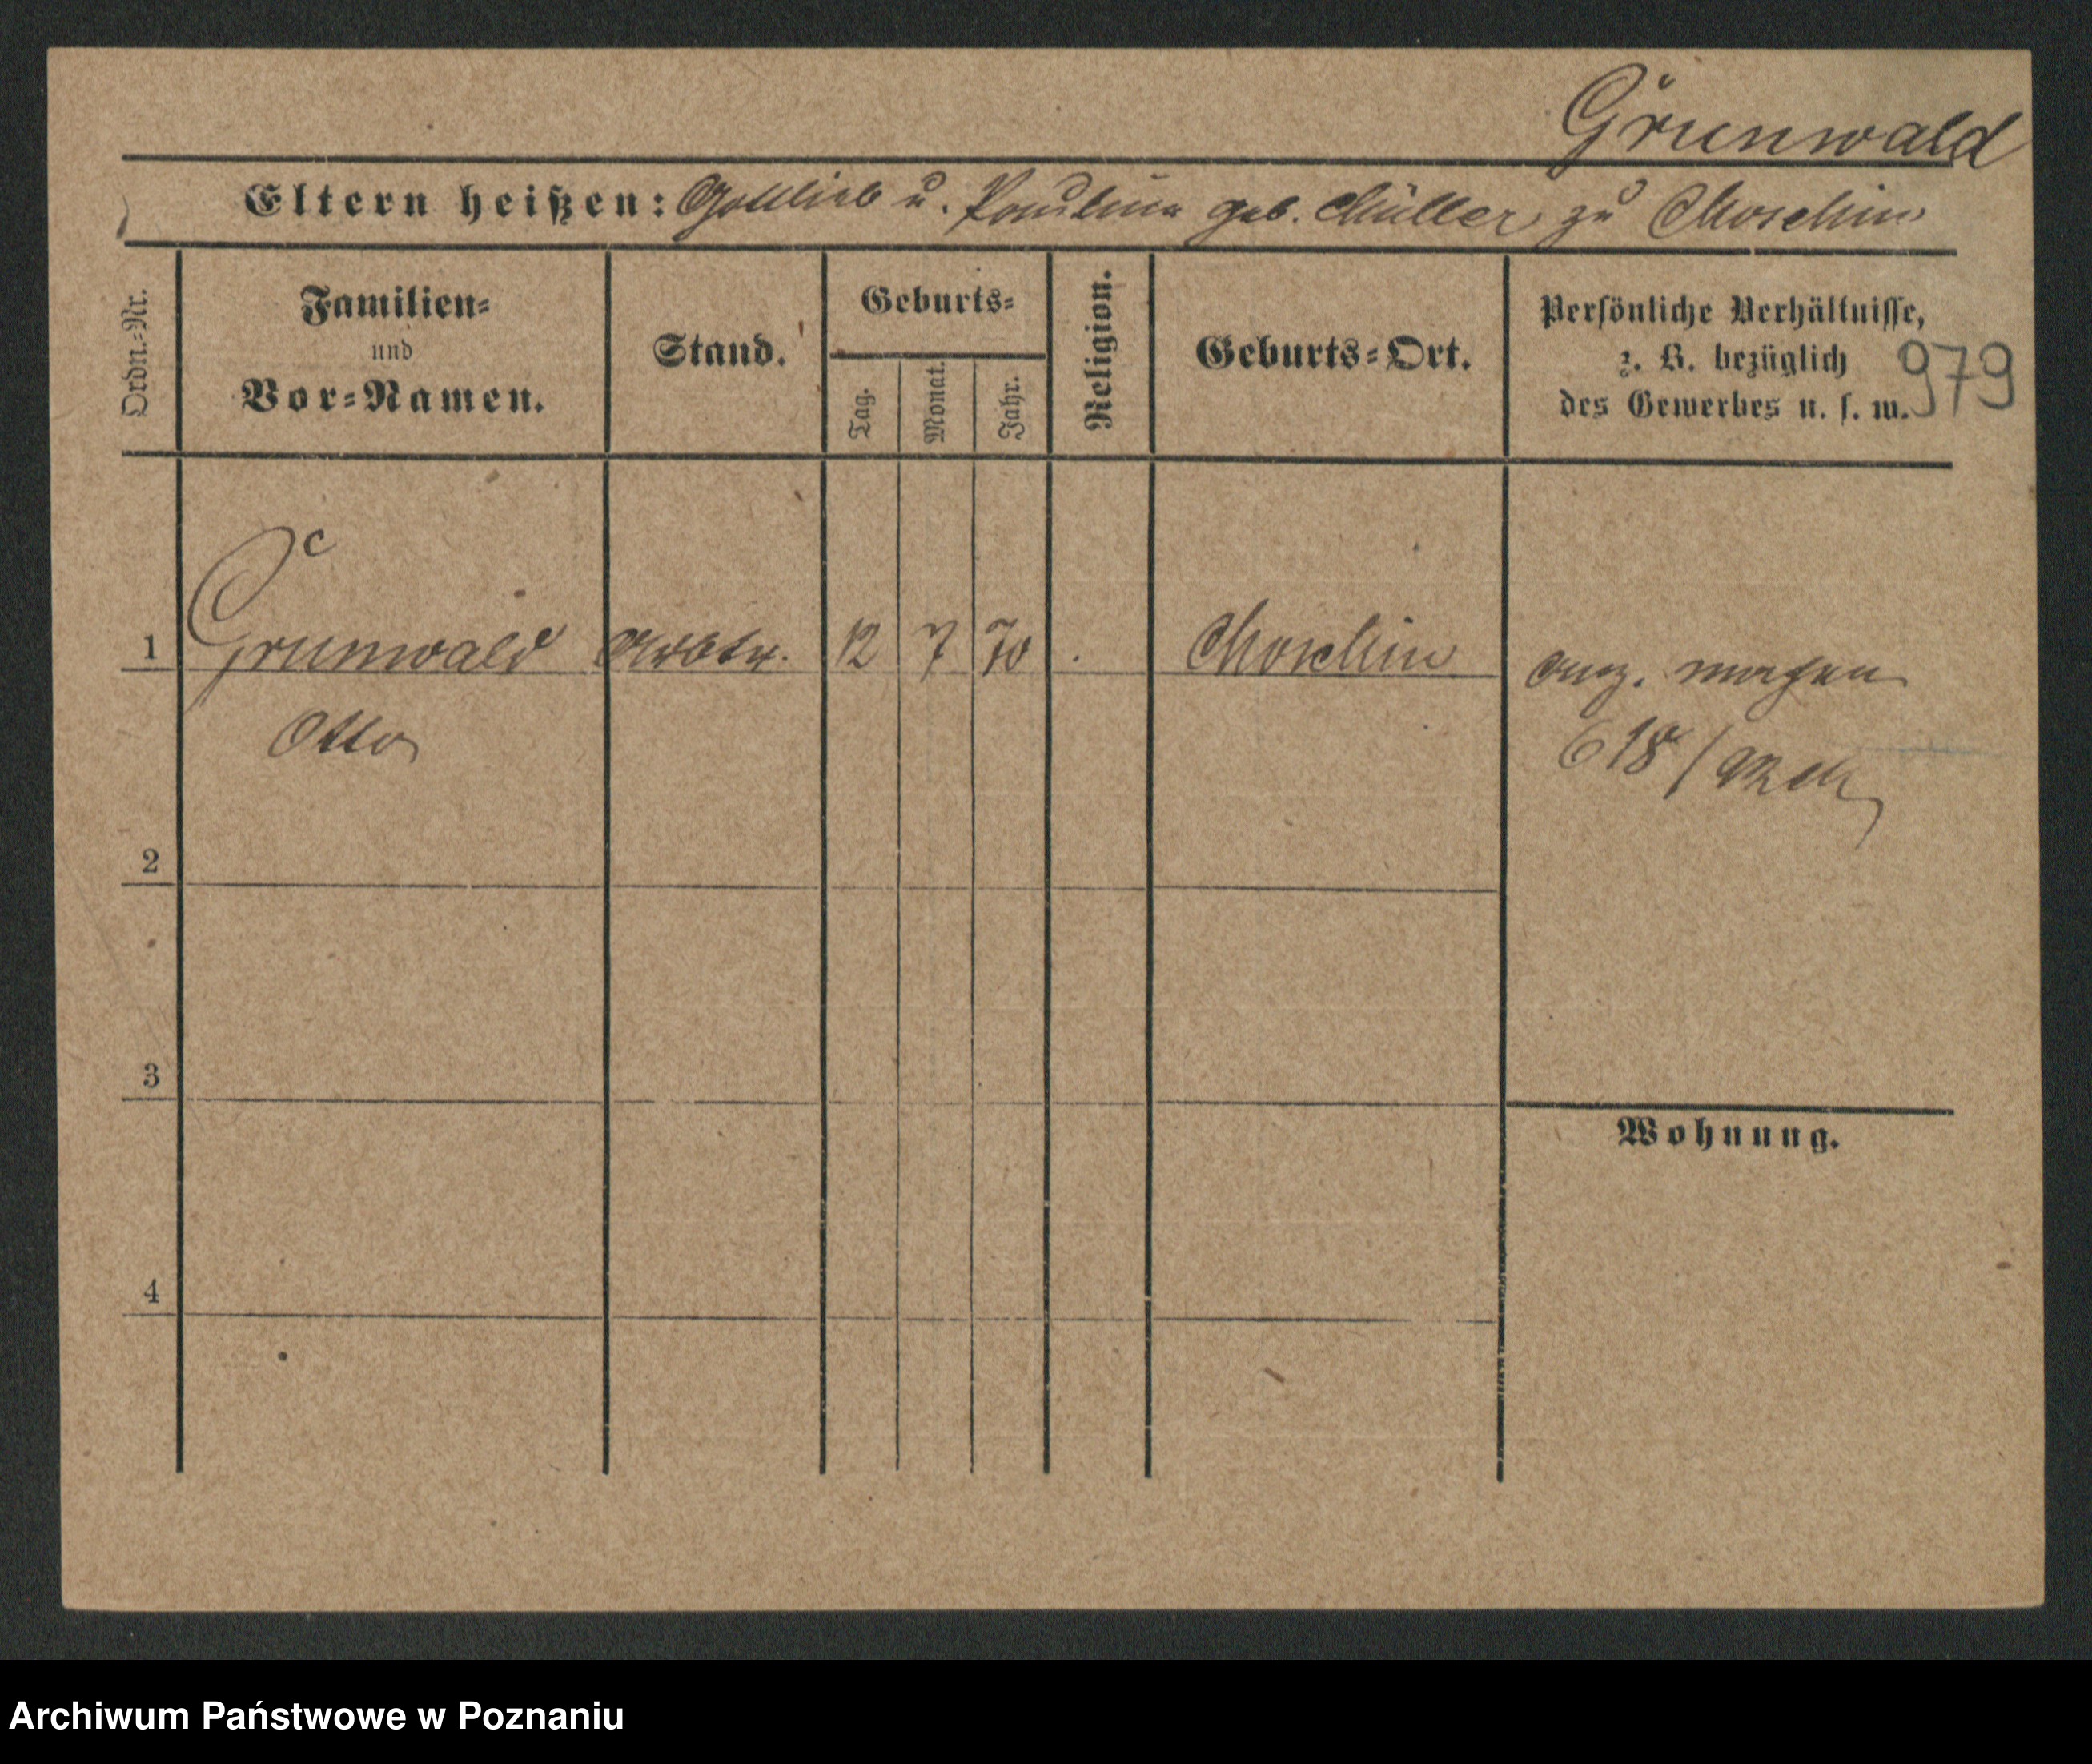 Grunwald
Eltern heißen: Gottlieb u. Pauline geb. Müller zu Moschin
Ordn.-Nr.
Familien-
und
Vor-Namen.
Stand.
Geburts-
Tag.
Monat.
Jahr.
Religion.
Geburts-Ort.
Persönliche Verhältnisse,
z. B. bezüglich
des Gewerbes u. s. w.
979
1 Grunwald 12 7 70 Moschin
Otto
618/
2
3
Wohnung.
4
Archiwum Państwowe w Poznaniu